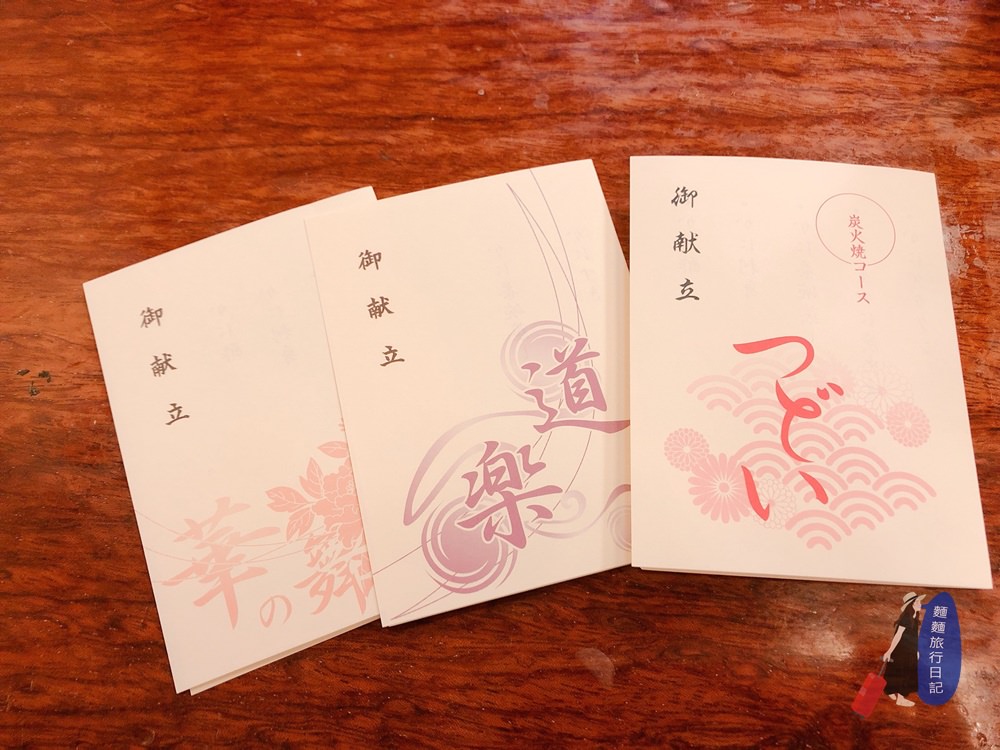 御献立
華の舞
御献立
道楽
御献立
炭火焼コース
つどい
麵麵旅行日記